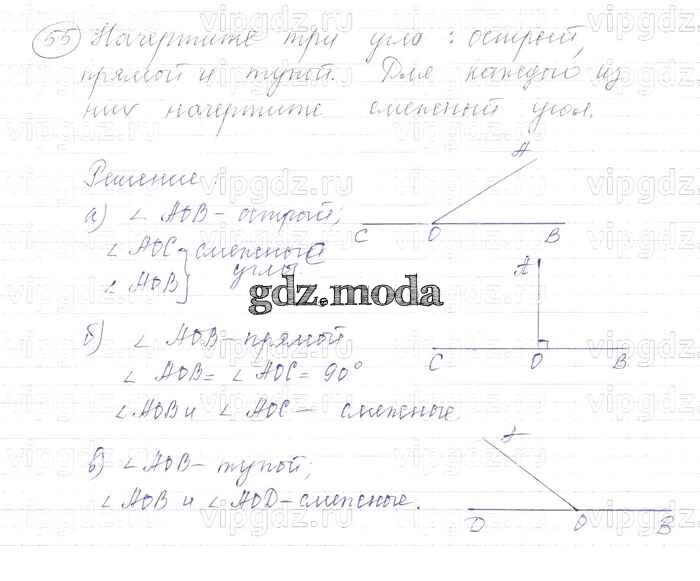 55 Начертите три угла: острый,
прямой и тупой. Для каждой из
них начертите смежный угол.
Решение
а) ∠ AOB - острый;
∠ AOC } смежный
∠ AOB } углы
A
C O B
gdz.moda
б) ∠ AOB - прямой
∠ AOB = ∠ AOC = 90°
∠ AOB и ∠ AOC - смежные.
A
C O B
в) ∠ AOB - тупой;
∠ AOB и ∠ AOD - смежные.
A
D O B
vipgdz.ru